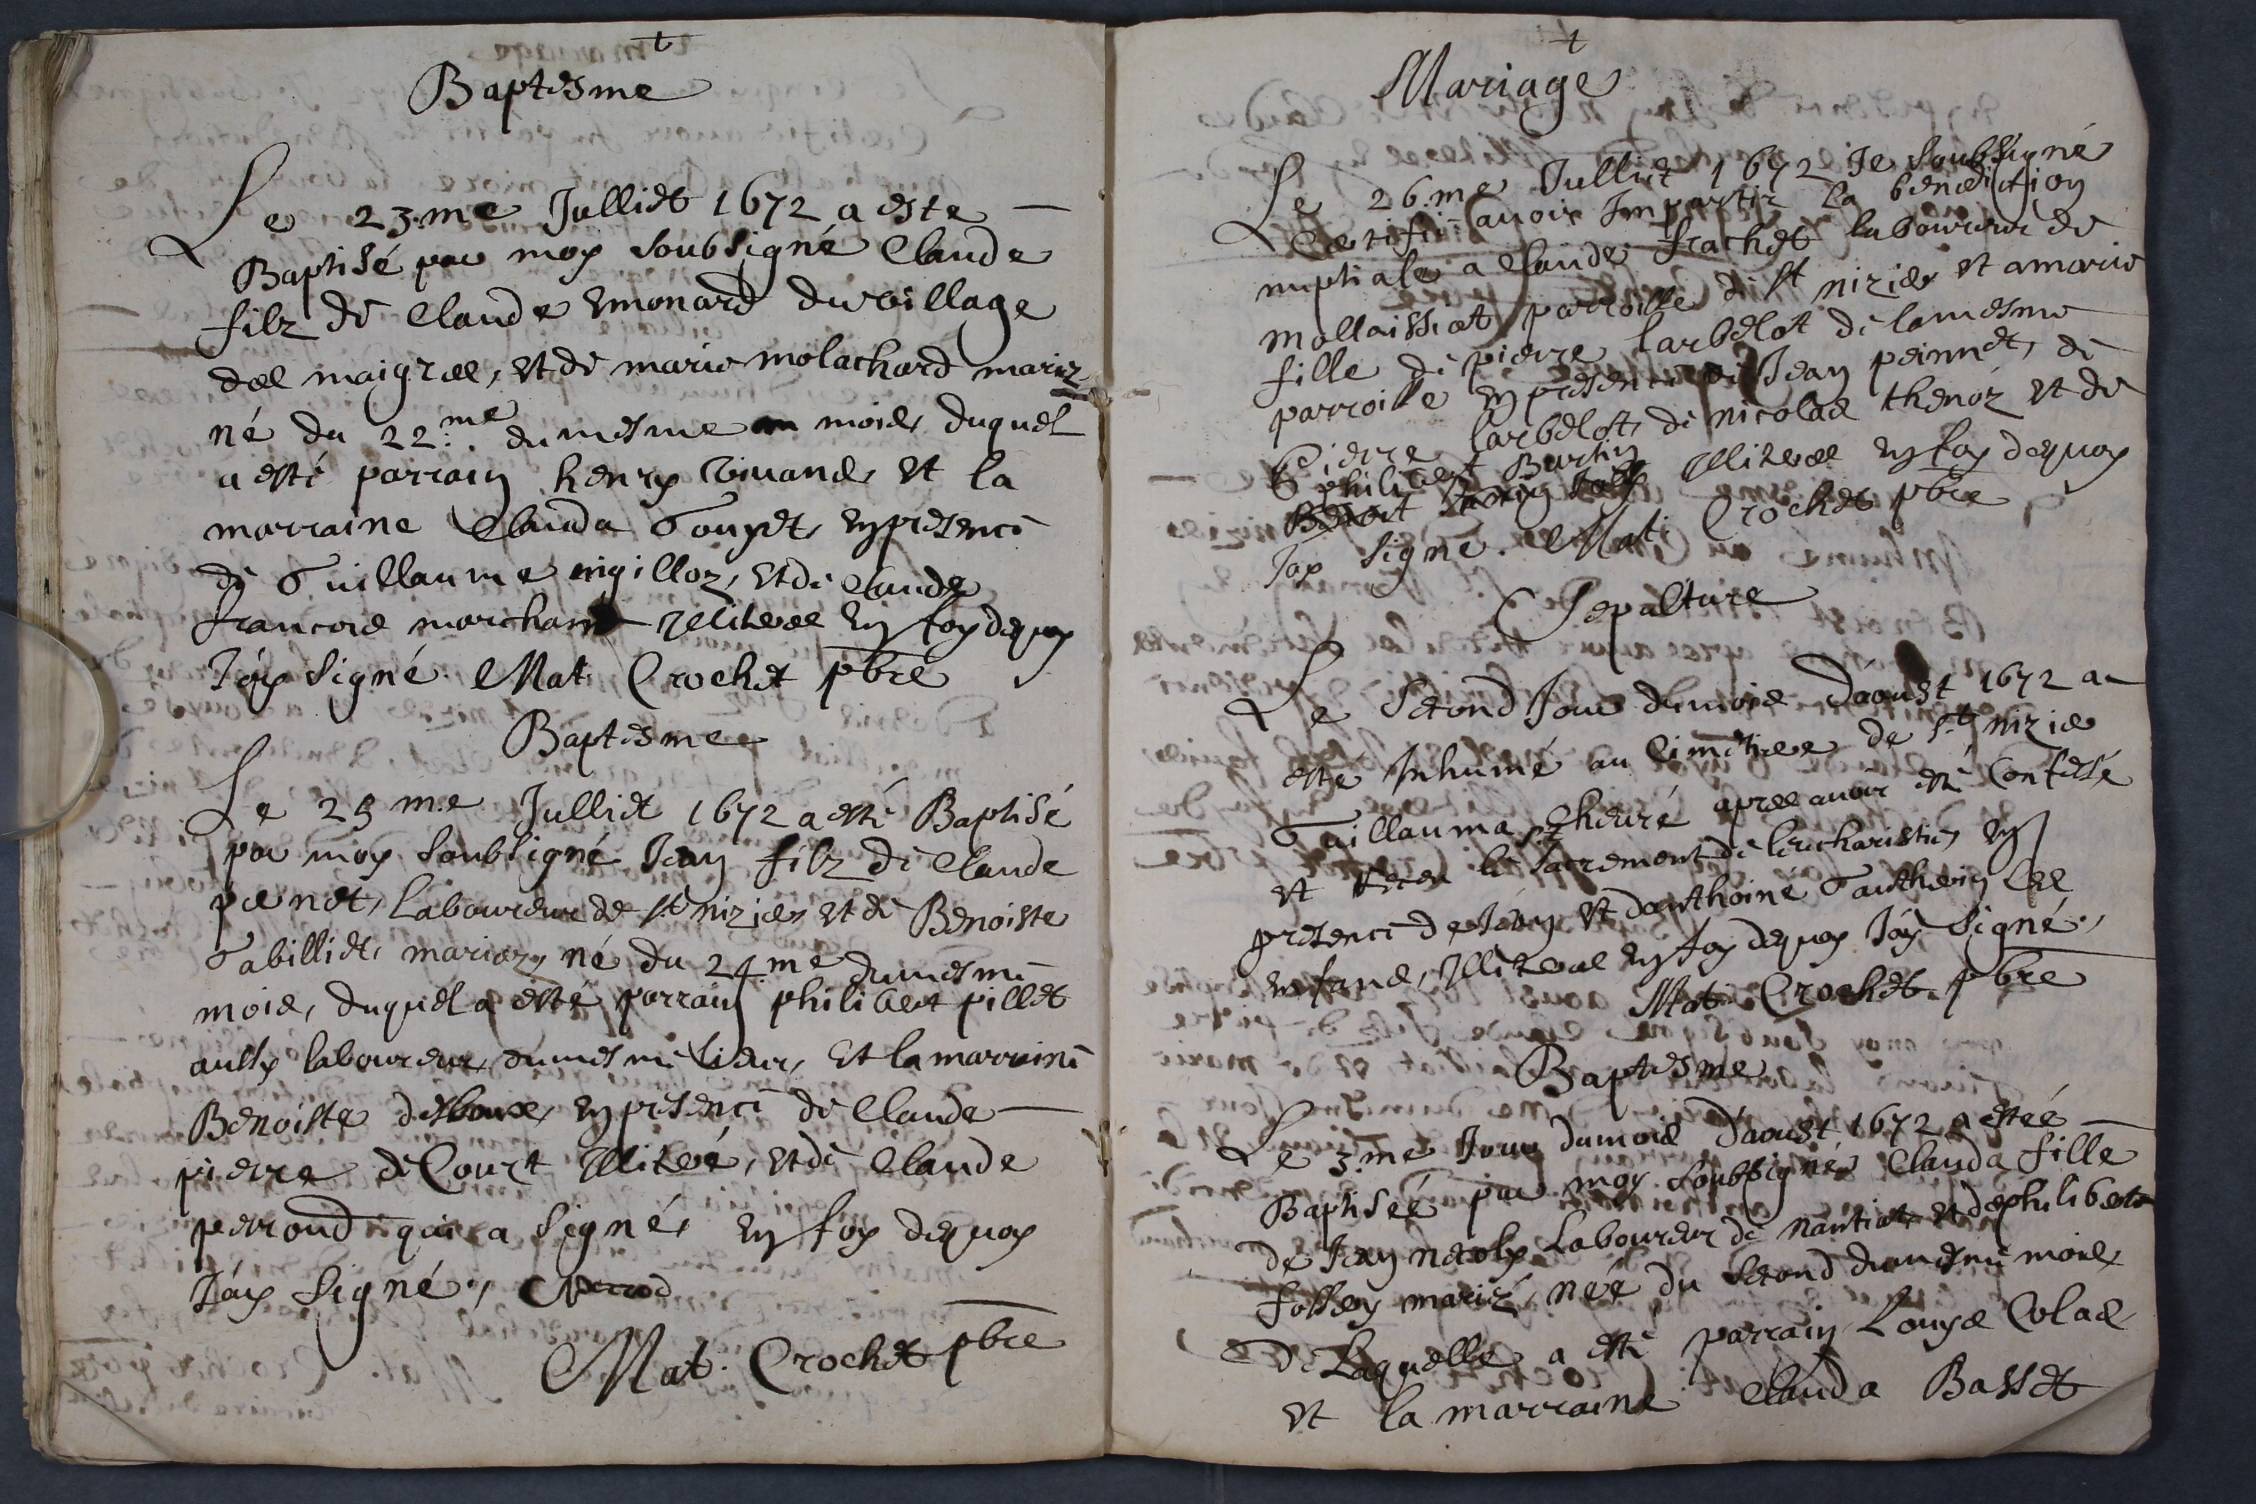 Baptesme
Le 23.me Julliet 1672 a este
Baptisé par moy soubsigné Claude
filz de Claude Emonard du village
des maigres, et de marie molachard mariz
né du 22.me du mesme mois, duquel
a esté parrain henry vivand, et la
marraine Clauda Gouyet, en presence
de Guillaume et de Claude
francois marchant Illiteres en foy dequoy
J'ay signé. Mat. Crochet pbre
Baptesme
Le 25 m.e Julliet 1672 a esté Baptisé
par moy soubsigné Jean filz de Claude
laboureur de st nizier et de Benoiste
Gabilliet, mariez, né du 24.me du mesme
mois, duquel a esté parrain philibert pillet
aussy laboureur du mesme lieu, Et la marraine
Benoiste en presence de Claude
pierre de Court Illiteré, et de Claude
perroud qui a signé, en foy dequoy
J'ay signé, Perrod
Mat. Crochet pbre
Mariage
Le 26.me Julliet 1672 Je soubsigné
Certifie avoir Impartir la benediction
nuptiale a Claude frachet laboureur de
mollaissiat parroisse de st nizier et a marie
fille de pierre Carbelot de la mesme
parroisse en presence de Jean peinnet, de
pierre Carbelot, de nicolas thenoz et de
philibert Burtin Illiteres en foy dequoy
Jay signé. Mat. Crochet pbre
Sepulture
Le second Jour du mois D'aoust 1672 a
esté Inhumé au Cimetiere de st nizier
Guillauma apres avoir esté Confessé
et Receu le sacrement de leucharistie, en
presence de Jean et danthoine Gauthier ses
enfans, Illiteres en foy dequoy J'ay signé,
Mat. Crochet pbre
Baptesme
Le 3.me Jour du mois D'aoust 1672 a estée
Baptisée par moy soubsigné Clauda fille
de Jean Laboureur de nantiat et de philiberte
mariz, née du second du mesme mois
De Laquelle a esté parrain Louys Colas
et la marraine Clauda Basset